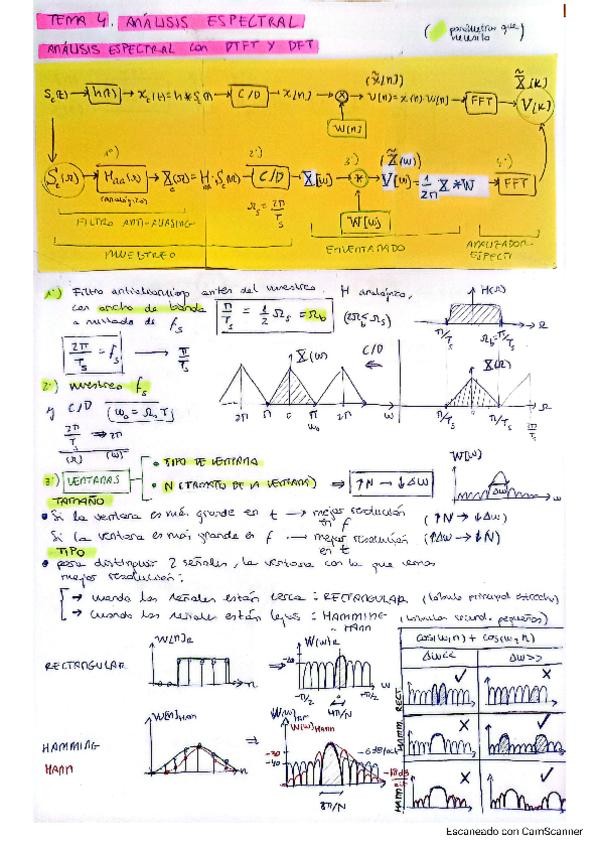 TEMA 4. ANÁLISIS ESPECTRAL
(parámetros que necesito)
ANÁLISIS ESPECTRAL con DTFT Y DFT
Sc(t) → h(t) → xc(t) = h * S(t) → C/D → x[n] → ⊗ → (x̃[n]) v[n] = x[n]·w[n] → FFT → X̃[k] V[k]
W[n]
1º) 2º) 3º) 4º)
Sc(Ω) → Haa(Ω) → Xc(Ω) = H·Sc(Ω) → C/D → X[w] → ⊛ → (X̃(w)) V[w] = 1/2π X * W → FFT
(analógico)
Ωs = 2π/Ts
W[w]
FILTRO ANTI-ALIASING
MUESTREO
ENVENTANADO
ANALIZADOR ESPECT
1º) Filtro antialiasing antes del muestreo. H analógico,
con ancho de banda π/Ts = 1/2 Ωs = Ωb (2Ωb ≤ Ωs)
a mitad de fs
H(Ω)
2π/Ts = fs → π/Ts
2º) muestreo fs
y C/D (w0 = Ω0T)
2π/Ts ⇒ 2π
(Ω) (w)
X(w)
C/D
X(Ω)
2π π 0 π 2π w
w0
π/Ts 0 π/Ts Ω 2π/Ts
3º) VENTANAS
• TIPO DE VENTANA
• N (TAMAÑO DE LA VENTANA) ⇒ ↑N → ↓Δw
W[w]
Δw
TAMAÑO
• Si la ventana es más grande en t → mejor resolución en f (↑N → ↓Δw)
Si la ventana es más grande en f → mejor resolución en t (↑Δw → ↓N)
TIPO
• para distinguir 2 señales, la ventana con la que vemos
mejor resolución:
→ cuando las señales están cerca: RECTANGULAR (lóbulo principal estrecho)
→ cuando las señales están lejos: HAMMING (lóbulos secund. pequeños)
HANN
cos(w1n) + cos(w2n)
Δw<< Δw>>
RECTANGULAR
W[n]R
n
W(w)R
w
-π/2 0 π/2
4π/N
RECT.
HAMMING
HANN
W[n]HAM
n
W(w)HAM
W(w)HANN
-30
-40
8π/N
HAMM
HANN
Escaneado con CamScanner